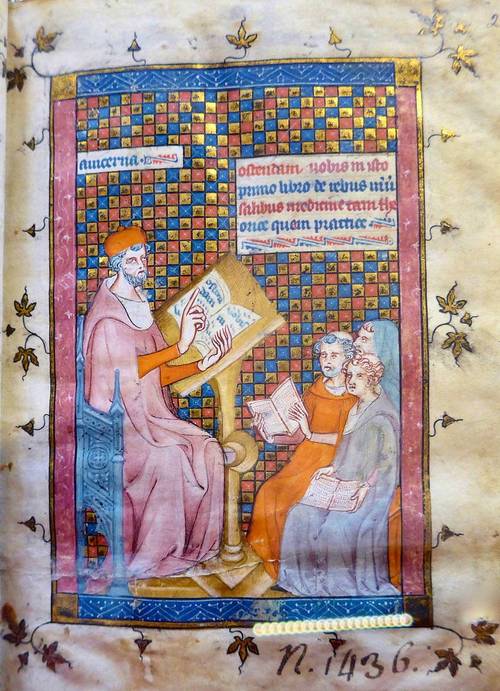 auicenna
ostendam uobis in isto
primo libro de rebus niũ
salibus medicine tam the
orice quem practice
osten
dam
N. 1436.